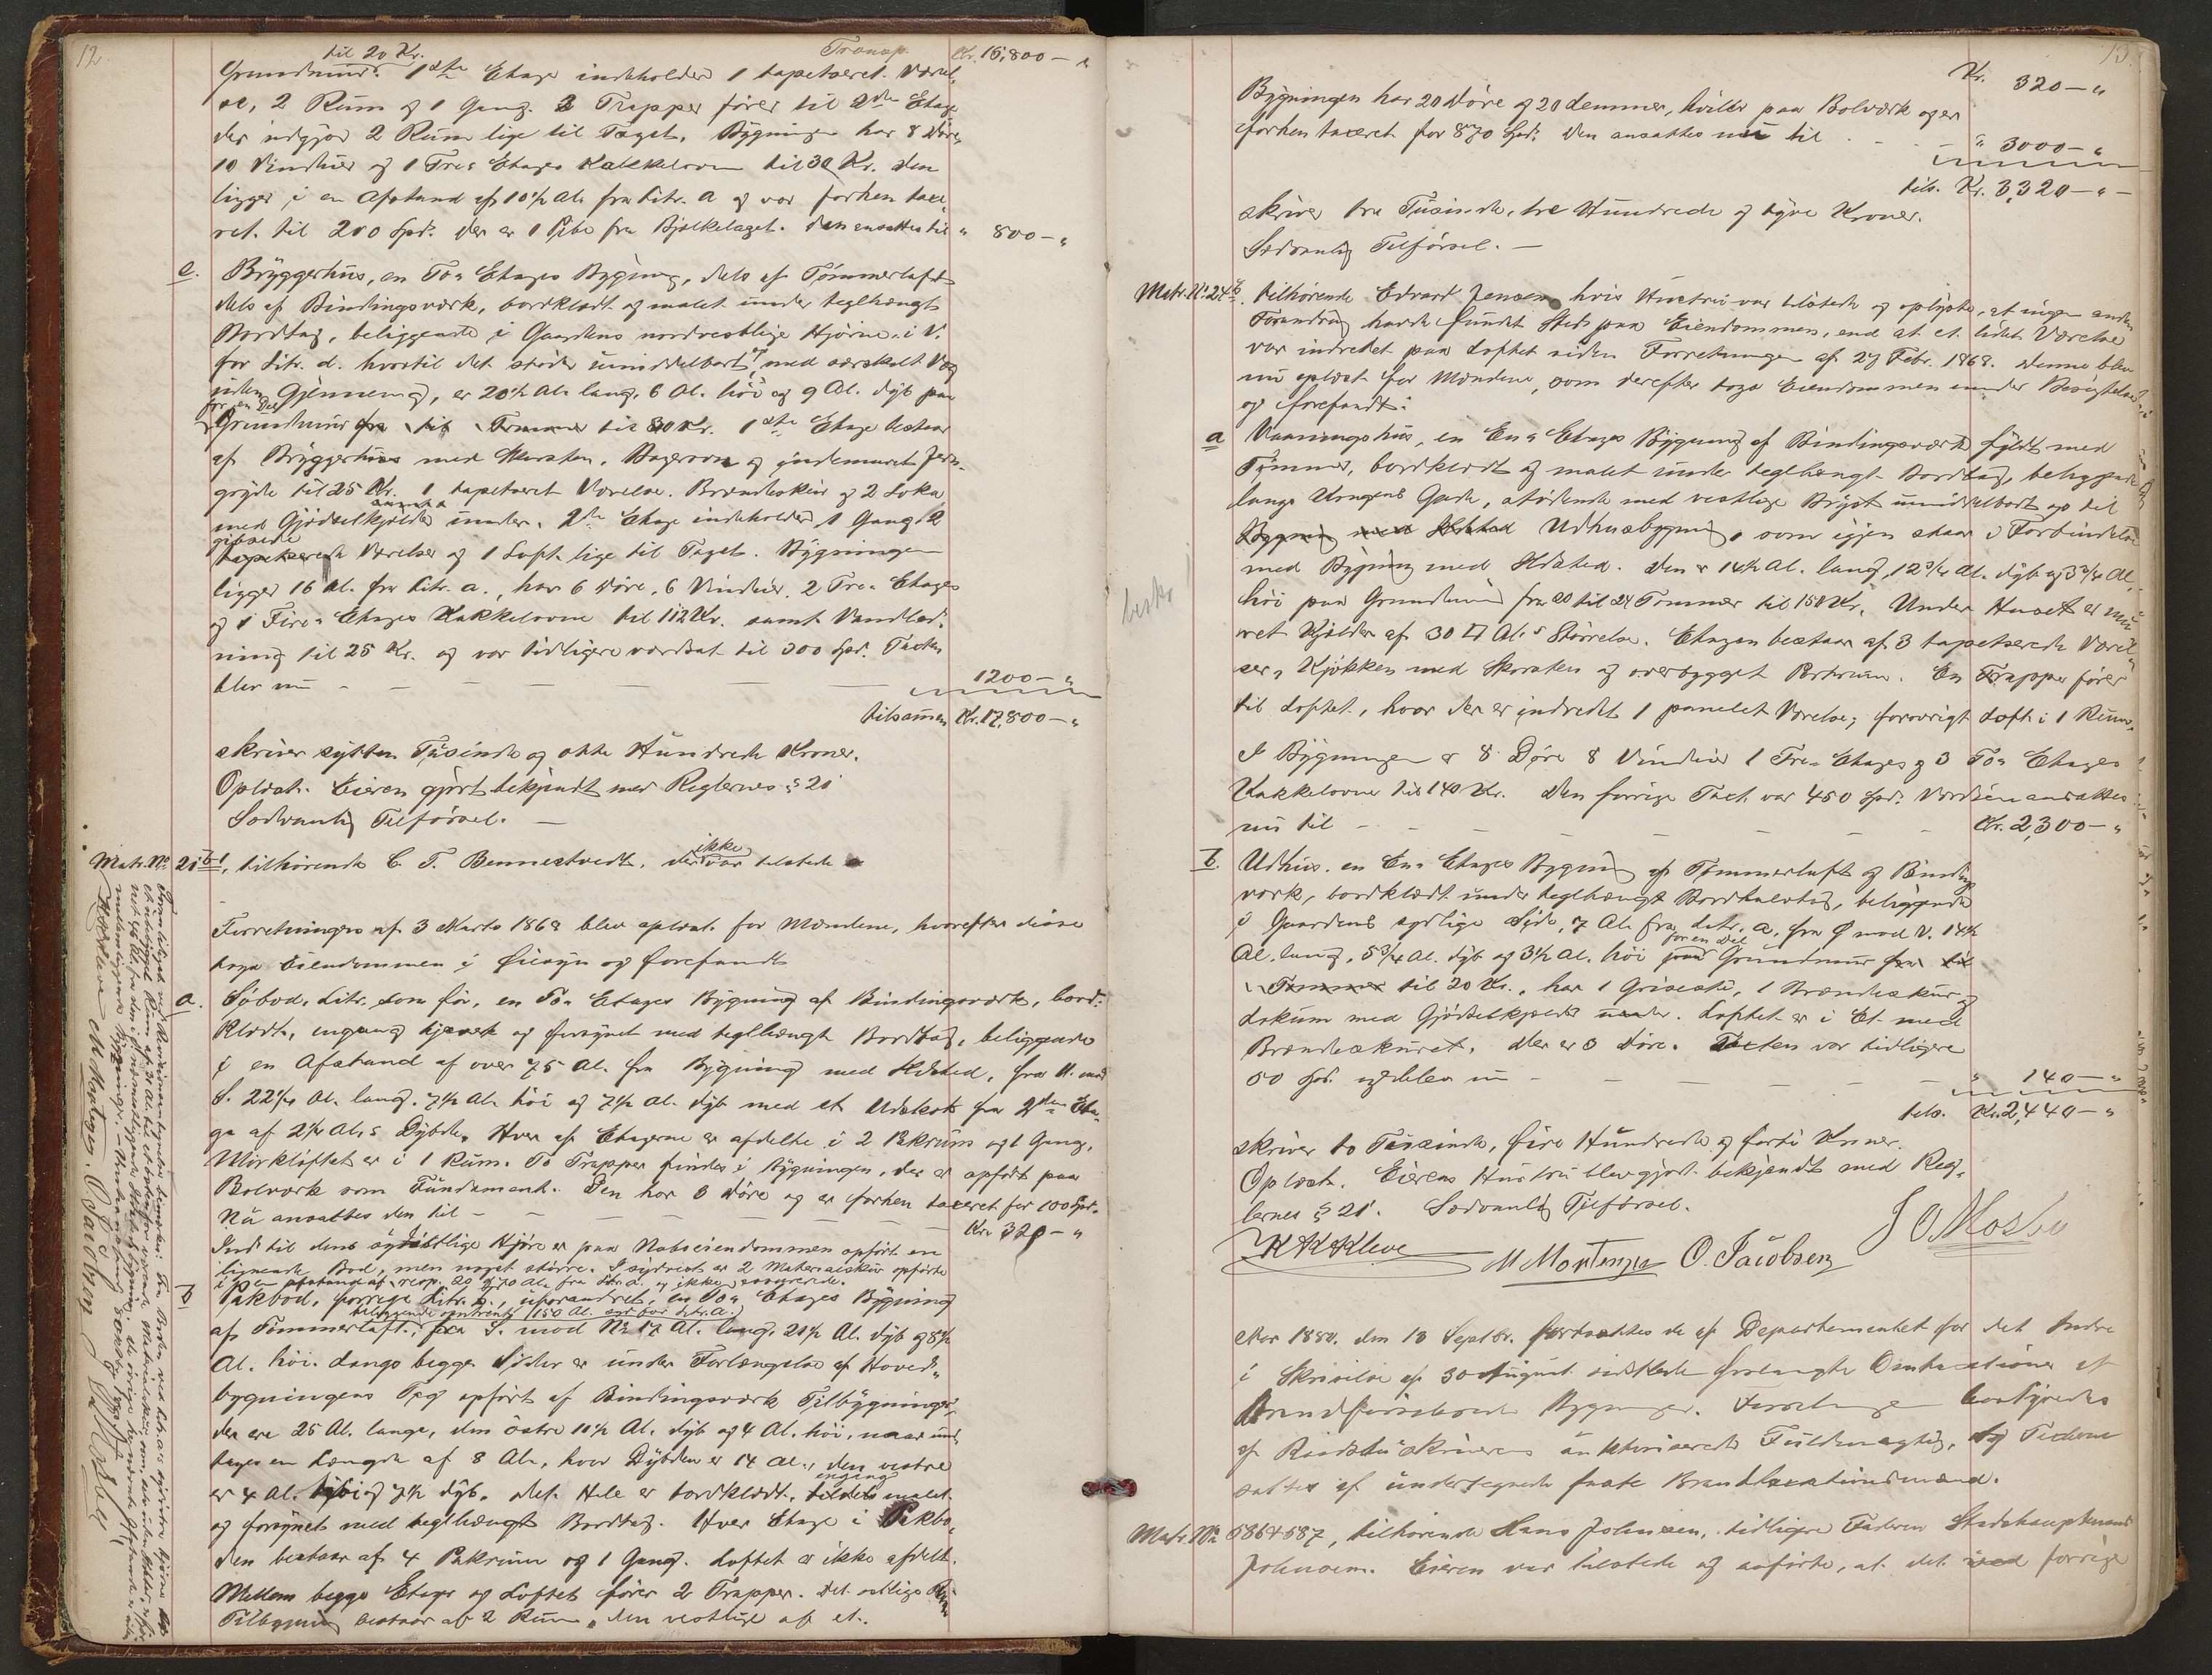 12.
til 20 Kr. Transp. Kr. 15,800 — "
Grundmur. 1ste Etage indeholder 1 tapetseret Værel-
se, 2 Rum og 1 Gang. 2 Trapper fører til 2den Etage
der udgjør 2 Rum lige til Taget. Bygningen har 8 Døre,
10 Vinduer og 1 Tre- Etages Kakkelovn til 30 Kr. Den
ligger i en Afstand af 10½ Al. fra Litr. a og var forhen taxe-
ret til 200 Spd. Der er 1 Pibe fra Bjelkelaget. Den ansattes til " 800 — "
e. Bryggerhus, en To- Etages Bygning, dels af Tømmerlaft
dels af Bindingsværk, bordklædt og malet under teglhængt
Bordtag, beliggende i Gaardens nordvestlige Hjørne i V.
for Litr. d. hvortil det støder umiddelbart, med særskilt Væg
uden Gjennemg, er 20½ Al. lang, 6 Al. høi og 9 Al. dyb paa
for en Del
Grundmur fra til Tommer til 30 Kr. 1ste Etage bestaar
af Bryggerhus med Skorsten, Bagerovn og indemuret Jern-
gryde til 25 Kr. 1 tapetseret Værelse. Brændeskur og 2 Loka
med Gjødselkjelder under. 2de Etage indeholder 1 Gang 2
gibsede
tapetserede Værelser og 1 Loft lige til Taget. Bygningen
ligger 16 Al. fra Litr. a., har 6 Døre, 6 Vinduer, 2 Tre- Etages
og 1 Fire- Etages Kakkelovne til 112 Kr. samt Vandled-
ning til 25 Kr. og var tidligere værdsat til 300 Spd. Taxten
blev nu — — — 1200 — "
tilsammen Kr. 17,800 — "
skriver sytten Tusinde og otte Hundrede Kroner.
Oplæst. Eieren gjort bekjendt med Reglernes § 21
Sædvanlig Tilførsel. —
Matr. No 21 b 1, tilhørende C. T. Bennestvedt, der ikke var tilstede
Forretningen af 3 Marts 1868 blev oplæst for Mændene, hvorefter disse
toge Eiendommen i Øiesyn og forefandt
a. Søbod, Litr. som før, en To- Etages Bygning af Bindingsværk, bord-
klædt, engang tjæret og forsynet med teglhængt Bordtag, beliggende
i en Afstand af over 75 Al. fra Bygning med Ildsted, fra N. mod
S. 22¼ Al. lang, 7½ Al. høi og 7½ Al. dyb med et Udskot fra 2den Eta-
ge af 2½ Al.s Dybde. Hver af Etagerne er afdelte i 2 Pakrum og 1 Gang,
Mørkloftet er i 1 Rum. To Trapper findes i Bygningen, der er opført paa
Bolværk som Fundament. Den har 6 Døre og er forhen taxeret for 100 Spd.
Nu ansattes den til — — — — Kr. 320 — "
Ind til dens sydøstlige Hjørne er paa Naboeiendommen opført en
lignende Bod, men noget større. I sydvest er 2 Materialskur opførte
i en Afstand af resp. 20 og 70 Al. fra Litr. a. og ikke assurerede.
b Pakbod, forrige Litr. b., uforandret, en To- Etages Bygning
beliggende omtrent 150 Al. syd for Litr. a.
af Tømmerlaft, fra S. mod N. 17 Al. lang, 21½ Al. dyb og 8½
Al. høi. Langs begge Sider er under Forlængelse af Hoved-
bygningens Tag opført af Bindingsværk Tilbygninger,
der ere 25 Al. lange, den østre 10½ Al. dyb og 4 Al. høi, naar und-
tages en Længde af 8 Al., hvor Dybden er 14 Al., den vestre
er 4 Al. høi og 7½ dyb. Det Hele er bordklædt, engang malet
og forsynet med teglhængt Bordtag. Hver Etage i Pakbo-
den bestaar af 4 Pakrum og 1 Gang. Loftet er ikke afdelt.
Mellem begge Etager og Loftet fører 2 Trapper. Det østlige
Tilbygning bestaar af 2 Rum, den vestlige af et.
13.
Kr. 320 — "
Bygningen har 20 Døre og 20 Lemmer, hviler paa Bolværk og er
forhen taxeret for 870 Spd. Den ansattes nu til . — . — " 3000 — "
tils. Kr. 3,320 — " —
skriver tre Tusinde, tre Hundrede og tyve Kroner.
Sædvanlig Tilførsel. —
Matr. No 24 b. tilhørende Edvard Jensen hvis Hustru var tilstede og oplyste, at ingen anden
Forandring havde fundet Sted paa Eiendommen, end at et lidet Værelse
var indredet paa Loftet siden Forretningen af 27 Febr. 1868. Denne blev
nu oplæst for Mændene, som derefter toge Eiendommen under Besigtelse
og forefandt:
a Vaaningshus, en En- Etages Bygning af Bindingsværk fyldt med
Tømmer, bordklædt og malet under teglhængt Bordtag, beliggende
langs Gade, stødende med vestlige Bryst umiddelbart op til
Bygning med Ildsted Udhusbygning, som igjen staar i Forbindelse
med Bygning med Ildsted. Den er 14½ Al. lang, 12¾ Al. dyb og 3¾ Al.
høi paa Grundmur fra 20 til 24 Tommer til 150 Kr. Under Huset er mu-
ret Kjelder af 30 □ Al.s Størrelse. Etagen bestaar af 3 tapetserede Værel-
ser, Kjøkken med Skorsten og overbygget Portrum. En Trappe fører
til Loftet, hvor der er indredet 1 panelet Værelse; forøvrigt Loft i 1 Rum.
I Bygningen er 8 Døre 8 Vinduer 1 Tre- Etages og 3 To- Etages
Kakkelovne til 140 Kr. Den forrige Taxt var 450 Spd. Værdien ansattes
nu til — — — — — — Kr. 2,300 — "
b. Udhus, en En- Etages Bygning af Tømmerlaft og Binding
værk, bordklædt under teglhængt Bordhalvtag, beliggende
i Gaardens sydlige Side, 7 Al. fra Litr. a, fra Ø mod V. 14½
for en Del
Al. lang, 5¾ Al. dyb og 3½ Al. høi paa Grundmur fra til
Tommer til 20 Kr., har 1 Grisesti, 1 Brændeskur og
Lokum med Gjødselkjelder under. Loftet er i Et med
Brændeskuret. Der er 3 Døre. Taxten var tidligere
50 Spd. og blev nu — — — — — " 140 — "
tils. Kr. 2,440 — "
skriver to Tusinde, fire Hundrede og førti Kroner.
Oplæst. Eierens Hustru blev gjort bekjendt med Reg-
lernes § 21. Sædvanlig Tilførsel.
K K Kleve M Mortensen O. Jacobsen
Aar 1880, den 13 Septbr. fortsattes de af Departementet for det Indre
i Skrivelse af 30 August sidstleden forlangte Omtaxationer af
brandforsikrede Bygninger. Forretningen bestyredes
af Raadstuskriverens auktoriserede Fuldmægtig, og Taxterne
sattes af undertegnede faste Brandtaxationsmænd.
Matr. No 586 & 587, tilhørende Hans Johnsen, tidligere Faderen Stadshauptmand
Johnsen. Eieren var tilstede og anførte, at det ved forrige